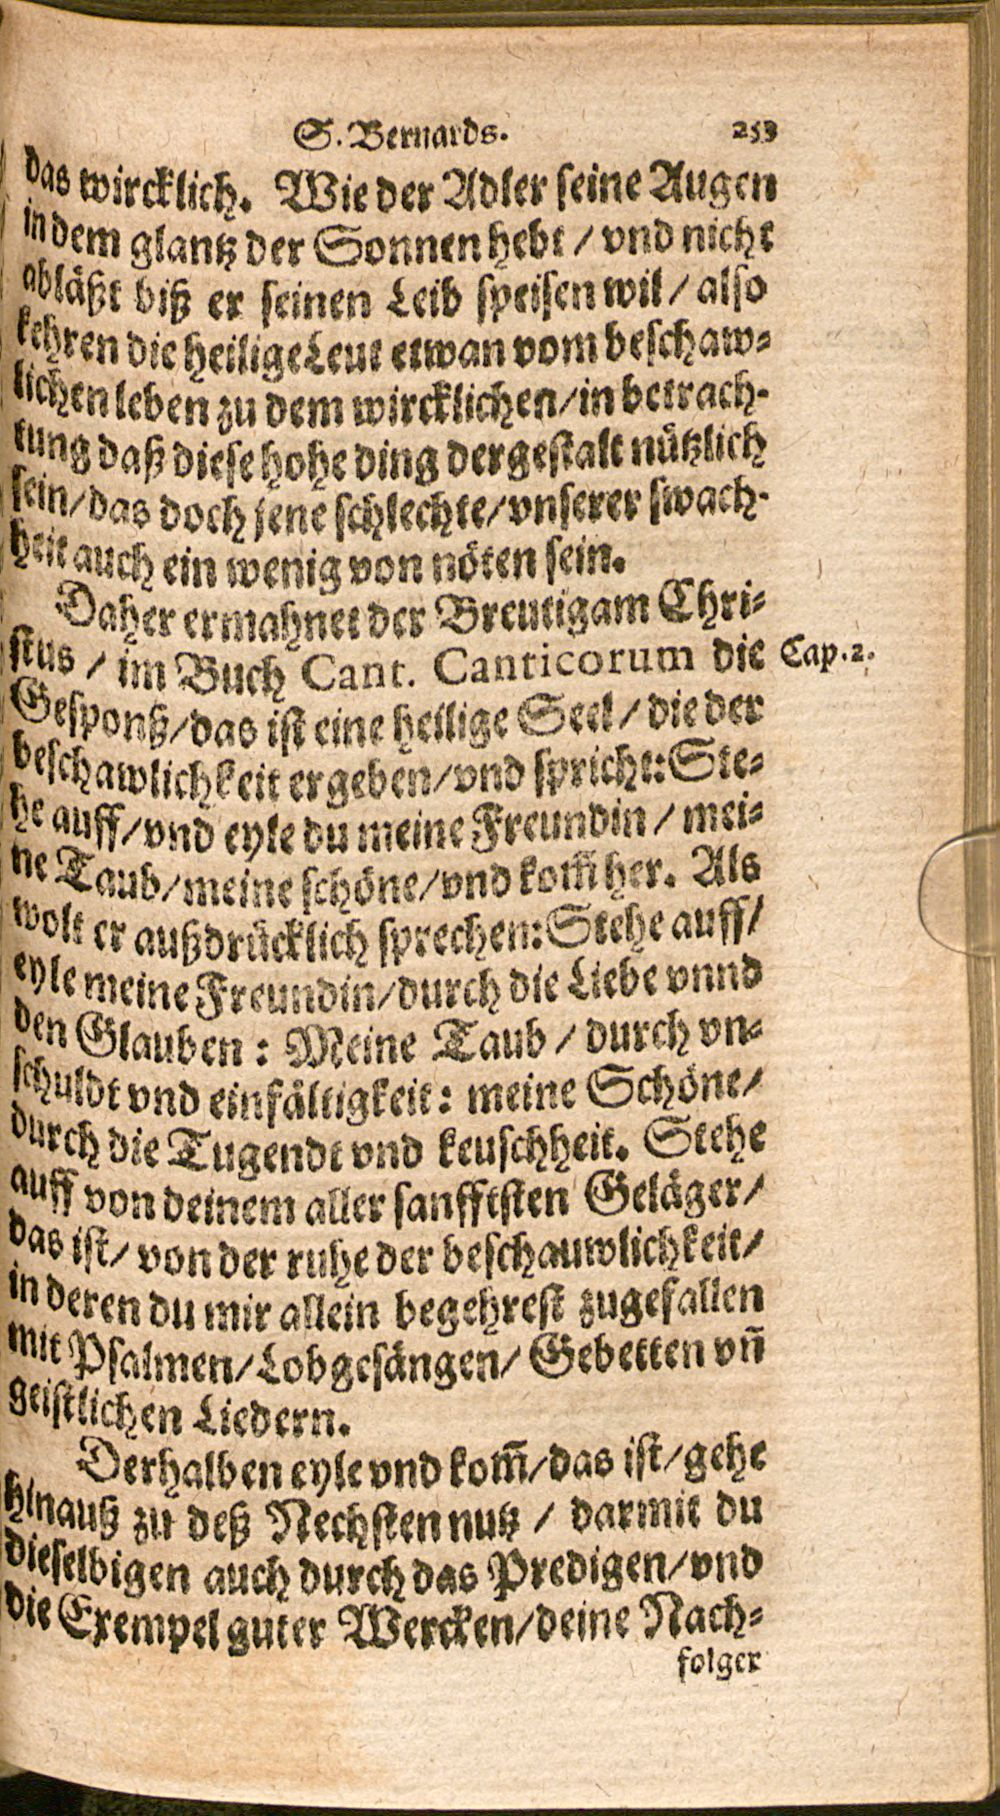 S. Bernards. 253
das wircklich. Wie der Adler seine Augen
in dem glantz der Sonnen hebt / vnd nicht
abläßt biß er seinen Leib speisen wil / also
kehren die heilige Leut etwan vom beschaw-
lichen leben zu dem wircklichen / in betrach-
tung daß diese hohe ding dergestalt nützlich
sein / das doch jene schlechte / vnserer swach-
heit auch ein wenig von nöten sein.
Daher ermahnet der Breutigam Chri-
stus / im Buch Cant. Canticorum die Cap. 2.
Gesponß / das ist eine heilige Seel / die der
beschawlichkeit ergeben / vnd spricht: Ste-
he auff / vnd eyle du meine Freundin / mei-
ne Taub / meine schöne / vnd kom̃ her. Als
wolt er außdrücklich sprechen: Stehe auff /
eyle meine Freundin / durch die Liebe vnnd
den Glauben : Meine Taub / durch vn-
schuldt vnd einfältigkeit : meine Schöne /
durch die Tugendt vnd keuschheit. Stehe
auff von deinem aller sanfftsten Geläger /
das ist / von der ruhe der beschauwlichkeit /
in deren du mir allein begehrest zugefallen
mit Psalmen / Lobgesängen / Gebetten vñ
geistlichen Liedern.
Derhalben eyle vnd kom̃ / das ist / gehe
hinauß zu deß Nechsten nutz / darmit du
dieselbigen auch durch das Predigen / vnd
die Exempel guter Wercken / deine Nach-
folger